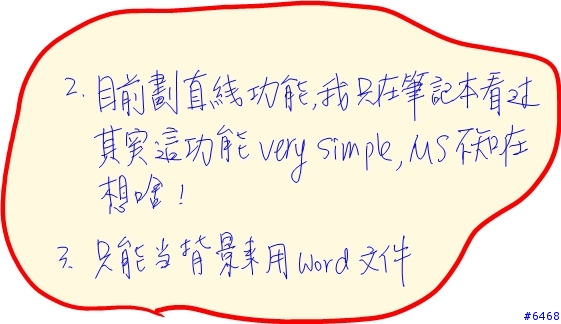 2. 目前劃直线功能,我只在筆記本看过
其实這功能 very simple, MS不知在
想啥!
3. 只能当背景来用 word 文件
#6468